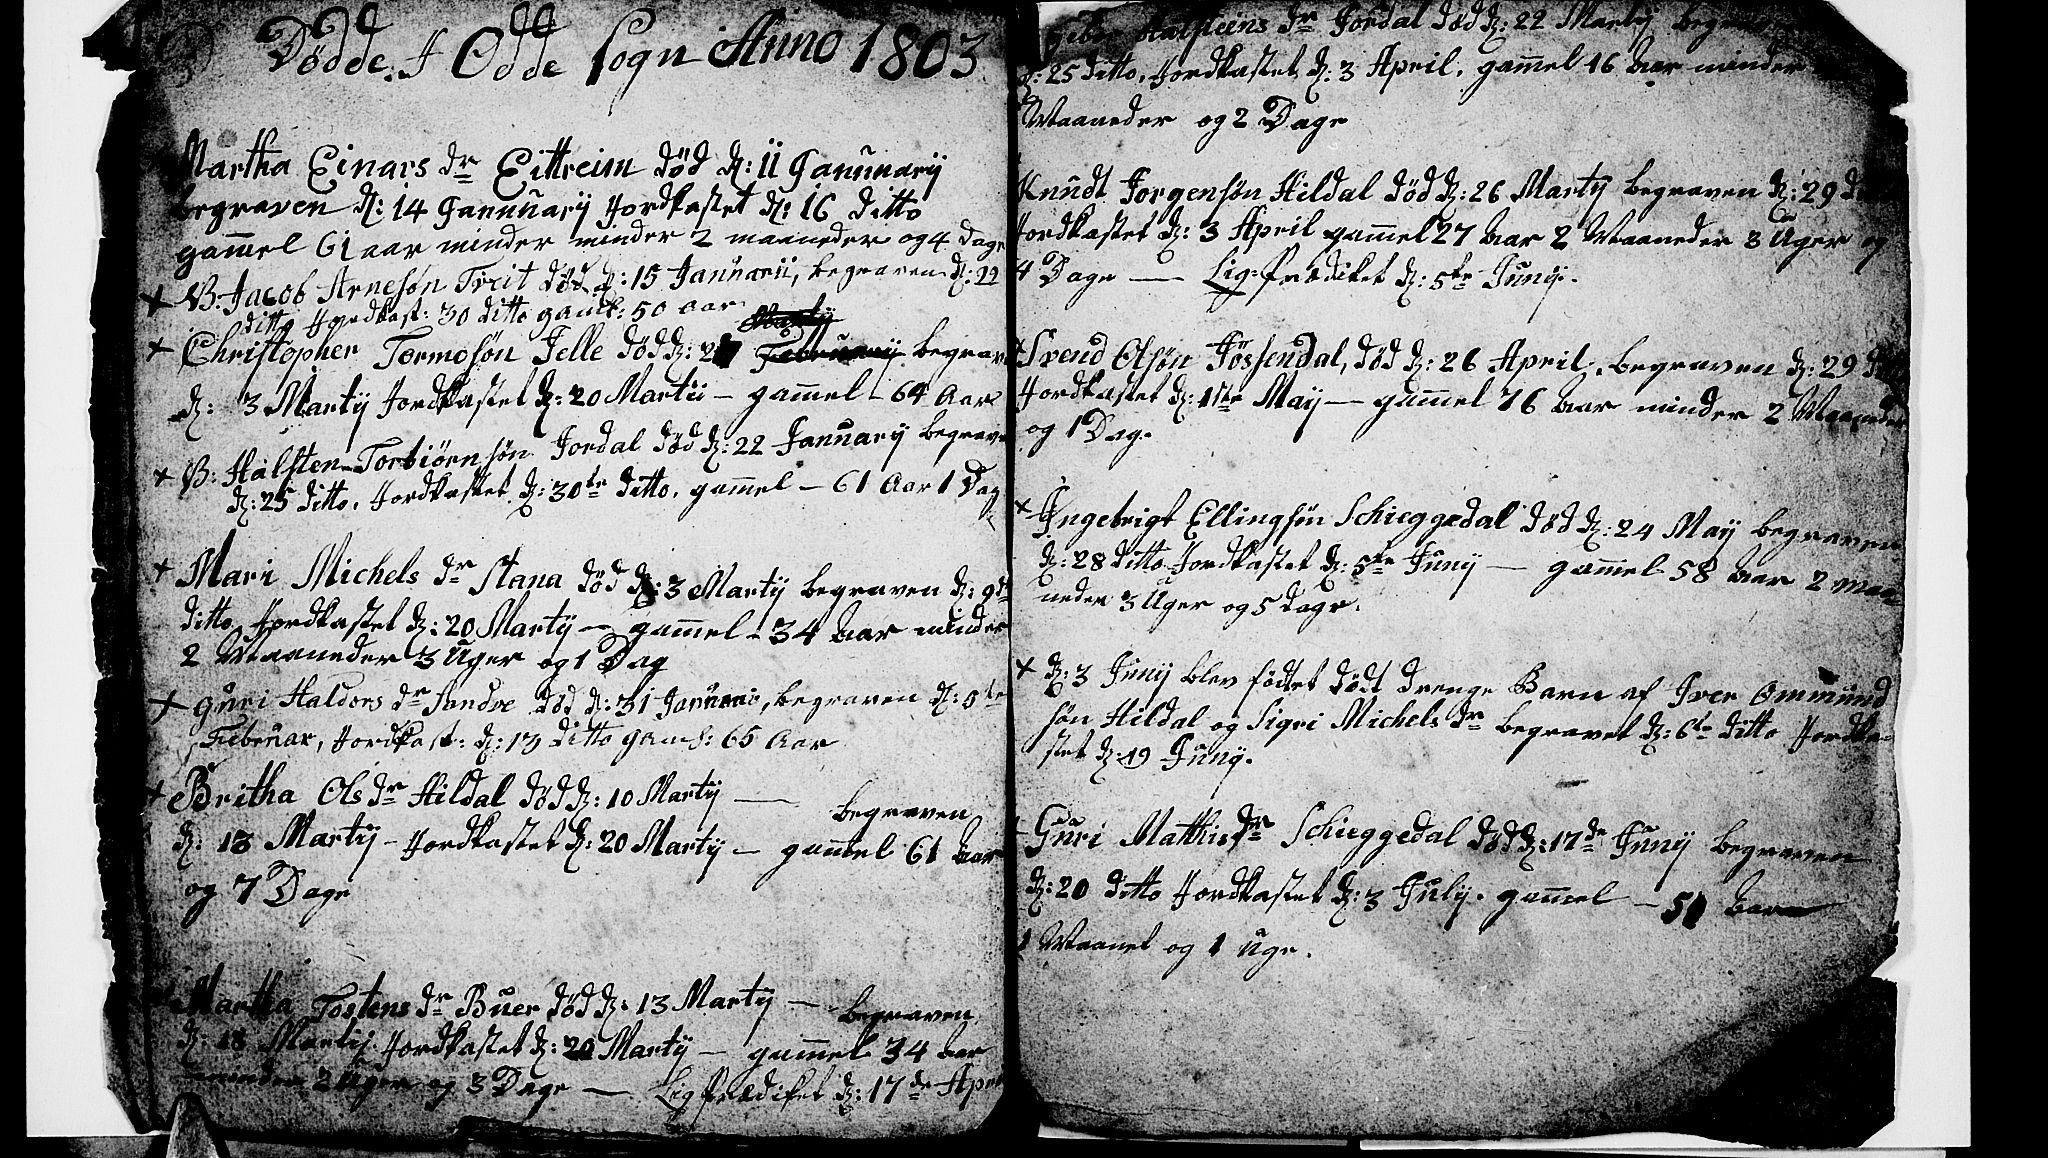 Dødde I Odde Sogn Anno 1803
Martha Einars dr Eittreim død d: 11 Januarij
begraven d: 14 Januarij Jordkastet d: 16 ditto
gammel 61 aar minder minder 2 maaneder og 4 dage
B: Jacob Arnesøn Freit død d: 15 Januarii, begraven d: 22
ditto Jordkast: 30 ditto gaml: 50 aar
Martij
Christopher Tormosøn Jelle død d: 27 Februarij begrav
d: 3 Martij Jordkastet d: 20 Martii - gammel - 64 Aar
B: Halsten Torbiörnsøn Jordal død d: 22 Januarij begrave
d: 25 ditto. Jordkastet d: 30te ditto. gammel - 61 Aar 1 Dag
Mari Michels dr Stana død d: 3 Martij begraven d: 9de
ditto Jordkastet d: 20 Martij - gammel - 34 Aar minder
2 Maaneder 3 Uger og 1 Dag
Guri Haldors dr Sandve død d: 31 Januari, begraven d: 5te
Februar, Jordkast: d: 13 ditto gaml: 65 Aar
Britha Ols dr Hildal død d: 10 Martij - begraven
d: 13 Martij - Jordkastet d: 20 Martij - gammel 61 Aar
og 7 Dage
Martha Tostens dr Buer død d: 13 Martij - begraven
d: 18 Martij Jordkastet d: 20 Martij - gammel 34 Aar
minder 2 Uger og 3 Dage - Ligprædiket d: 17de Apri
Halsteins dr Jordal død d: 22 Martij begrav
d: 25 ditto, Jordkastet d: 3 April. gammel 16 Aar minder
Maaneder og 2 Dage
Knudt Jorgensøn Hildal død d: 26 Martij begraven d: 29 ditto
Jordkastet d: 3 April gammel 27 Aar 2 Maaneder 3 Uger og
4 Dage - Lig-prædiket d: 5te Junij.
Svend Olsøn Jössendal, død d: 26 April. begraven d: 29 ditto
Jordkastet d: 1ste Maij - gammel 76 Aar minder 2 Maaneder
og 1 Dag.
Ingebrigt Ellingsøn Schieggedal død d: 24 Maij begraven
d: 28 ditto Jordkastet d: 5te Junij - gammel 58 Aar 2 maa
neder 3 Uger og 5 dage.
d: 3 Junij blev födtet dödt drenge Barn af Iver Ommund
søn Hildal og Sigri Michels dr begravet d: 6te ditto Jordka-
stet d: 19 Junij.
Guri Matthis dr Schieggedal død d: 17de Junij begraven
d: 20 ditto Jordkastet d: 3 Julij. gammel - 51 Aar
1 Maanet og 1 uge.